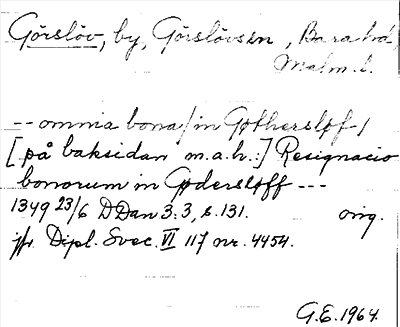 Görslöv, by, Görslövs sn, Bara hd,
Malm. l.
-- omnia bona /in Gøthersløf/
[på baksidan m.a.h.:] Resignacio
bonorum in Gødersløff ---
1349 23/6 DDan 3:3, s. 131. orig.
jfr Dipl. Svec. VI 117 nr. 4454.
G.E. 1964.